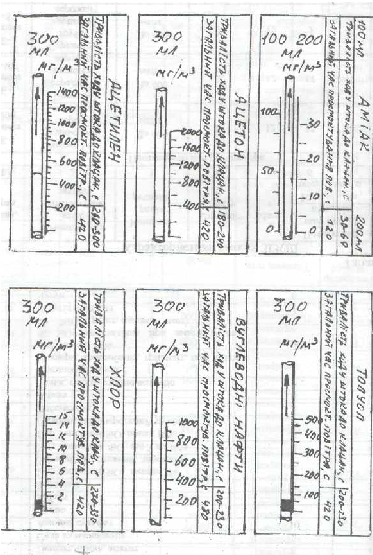 300
МЛ
МГ/М³
1400
1200
1000
800
600
400
200
АЦЕТИЛЕН
ТРИВАЛІСТЬ ХОДУ ШТОКА ДО КЛАЦАН., С
ЗАГАЛЬНИЙ ЧАС ПРОСМОКТ. ПОВІТР., С
420
300
МЛ
МГ/М³
2000
1600
1200
800
400
АЦЕТОН
ТРИВАЛІСТЬ ХОДУ ШТОКА ДО КЛАЦАН, С
180-240
ЗАГАЛЬНИЙ ЧАС ПРОСМОКТ ПОВІТРЯ
420
100 200
МЛ
МГ/М³
100
50
0
30
20
10
0
АМІАК
100 МЛ
200 МЛ
ТРИВАЛІСТЬ ХОДУ ШТОКА ДО КЛАЦАН, С
30-60
ЗАГАЛЬНИЙ ЧАС ПРОСМОКТУВАННЯ ПОВ., С
120
300
МЛ
МГ/М³
15
14
12
10
8
6
4
2
ХЛОР
ТРИВАЛІСТЬ ХОДУ ШТОКА ДО КЛАЦ., С
220-330
ЗАГАЛЬНИЙ ЧАС ПРОСМОКТУВ. ПОВ., С
420
300
МЛ
МГ/М³
1000
800
600
400
200
ВУГЛЕВОДНІ НАФТИ
ТРИВАЛІСТЬ ХОДУ ШТОКА ДО КЛАЦАН, С
200-230
ЗАГАЛЬНИЙ ЧАС ПРОСМОКТУВ ПОВІТРЯ, С
420
300
МЛ
МГ/М³
500
400
300
200
100
ТОЛУОЛ
ТРИВАЛІСТЬ ХОДУ ШТОКА ДО КЛАЦАН, С
200-230
ЗАГАЛЬНИЙ ЧАС ПРОСМОКТ. ПОВІТРЯ, С
420